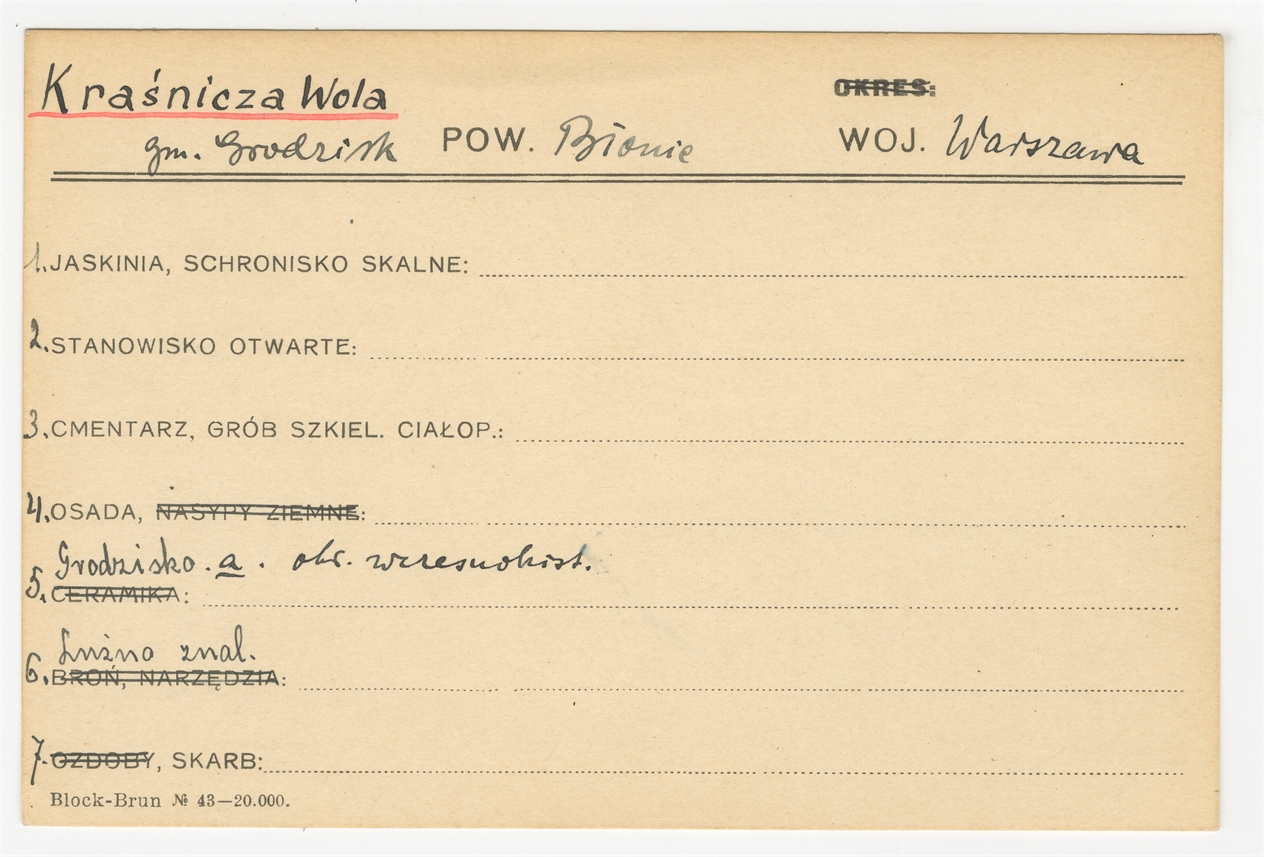 Kraśnicza Wola
OKRES:
gm. Grodzisk POW. Błonie WOJ. Warszawa
1. JASKINIA, SCHRONISKO SKALNE:
2. STANOWISKO OTWARTE:
3. CMENTARZ, GRÓB SZKIEL. CIAŁOP.:
4. OSADA, NASYPY ZIEMNE:
Grodzisko . a . okr. wczesnohist.
5. CERAMIKA:
Luźno znal.
6. BROŃ, NARZĘDZIA:
7. OZDOBY, SKARB:
Block-Brun № 43—20.000.